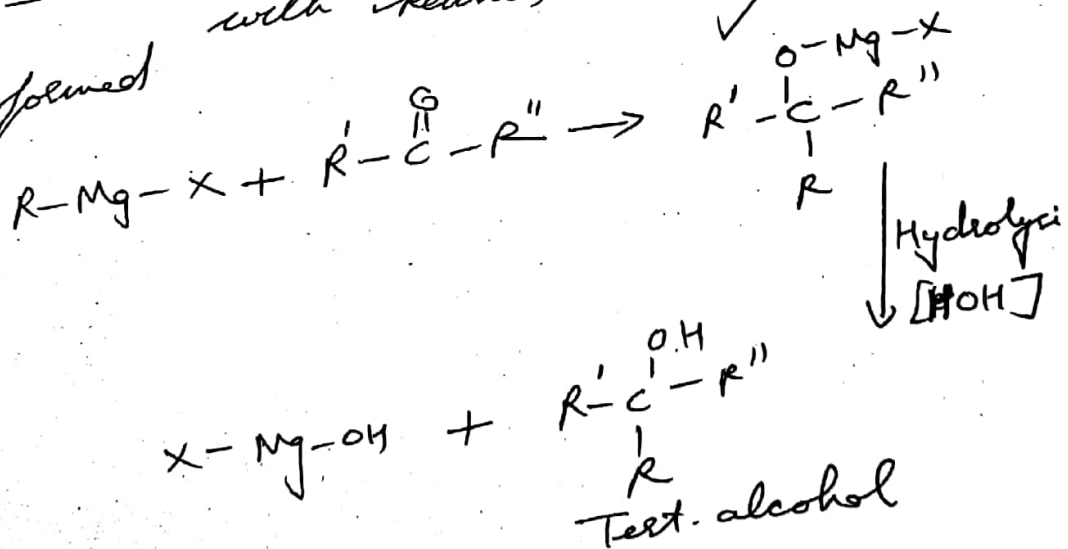 with
formed
R-Mg-X + R'-C(=O)-R" → R'-C(O-Mg-X)(R)-R"
Hydrolysi
[HOH]
X-Mg-OH + R'-C(O.H)(R)-R"
Tert. alcohol